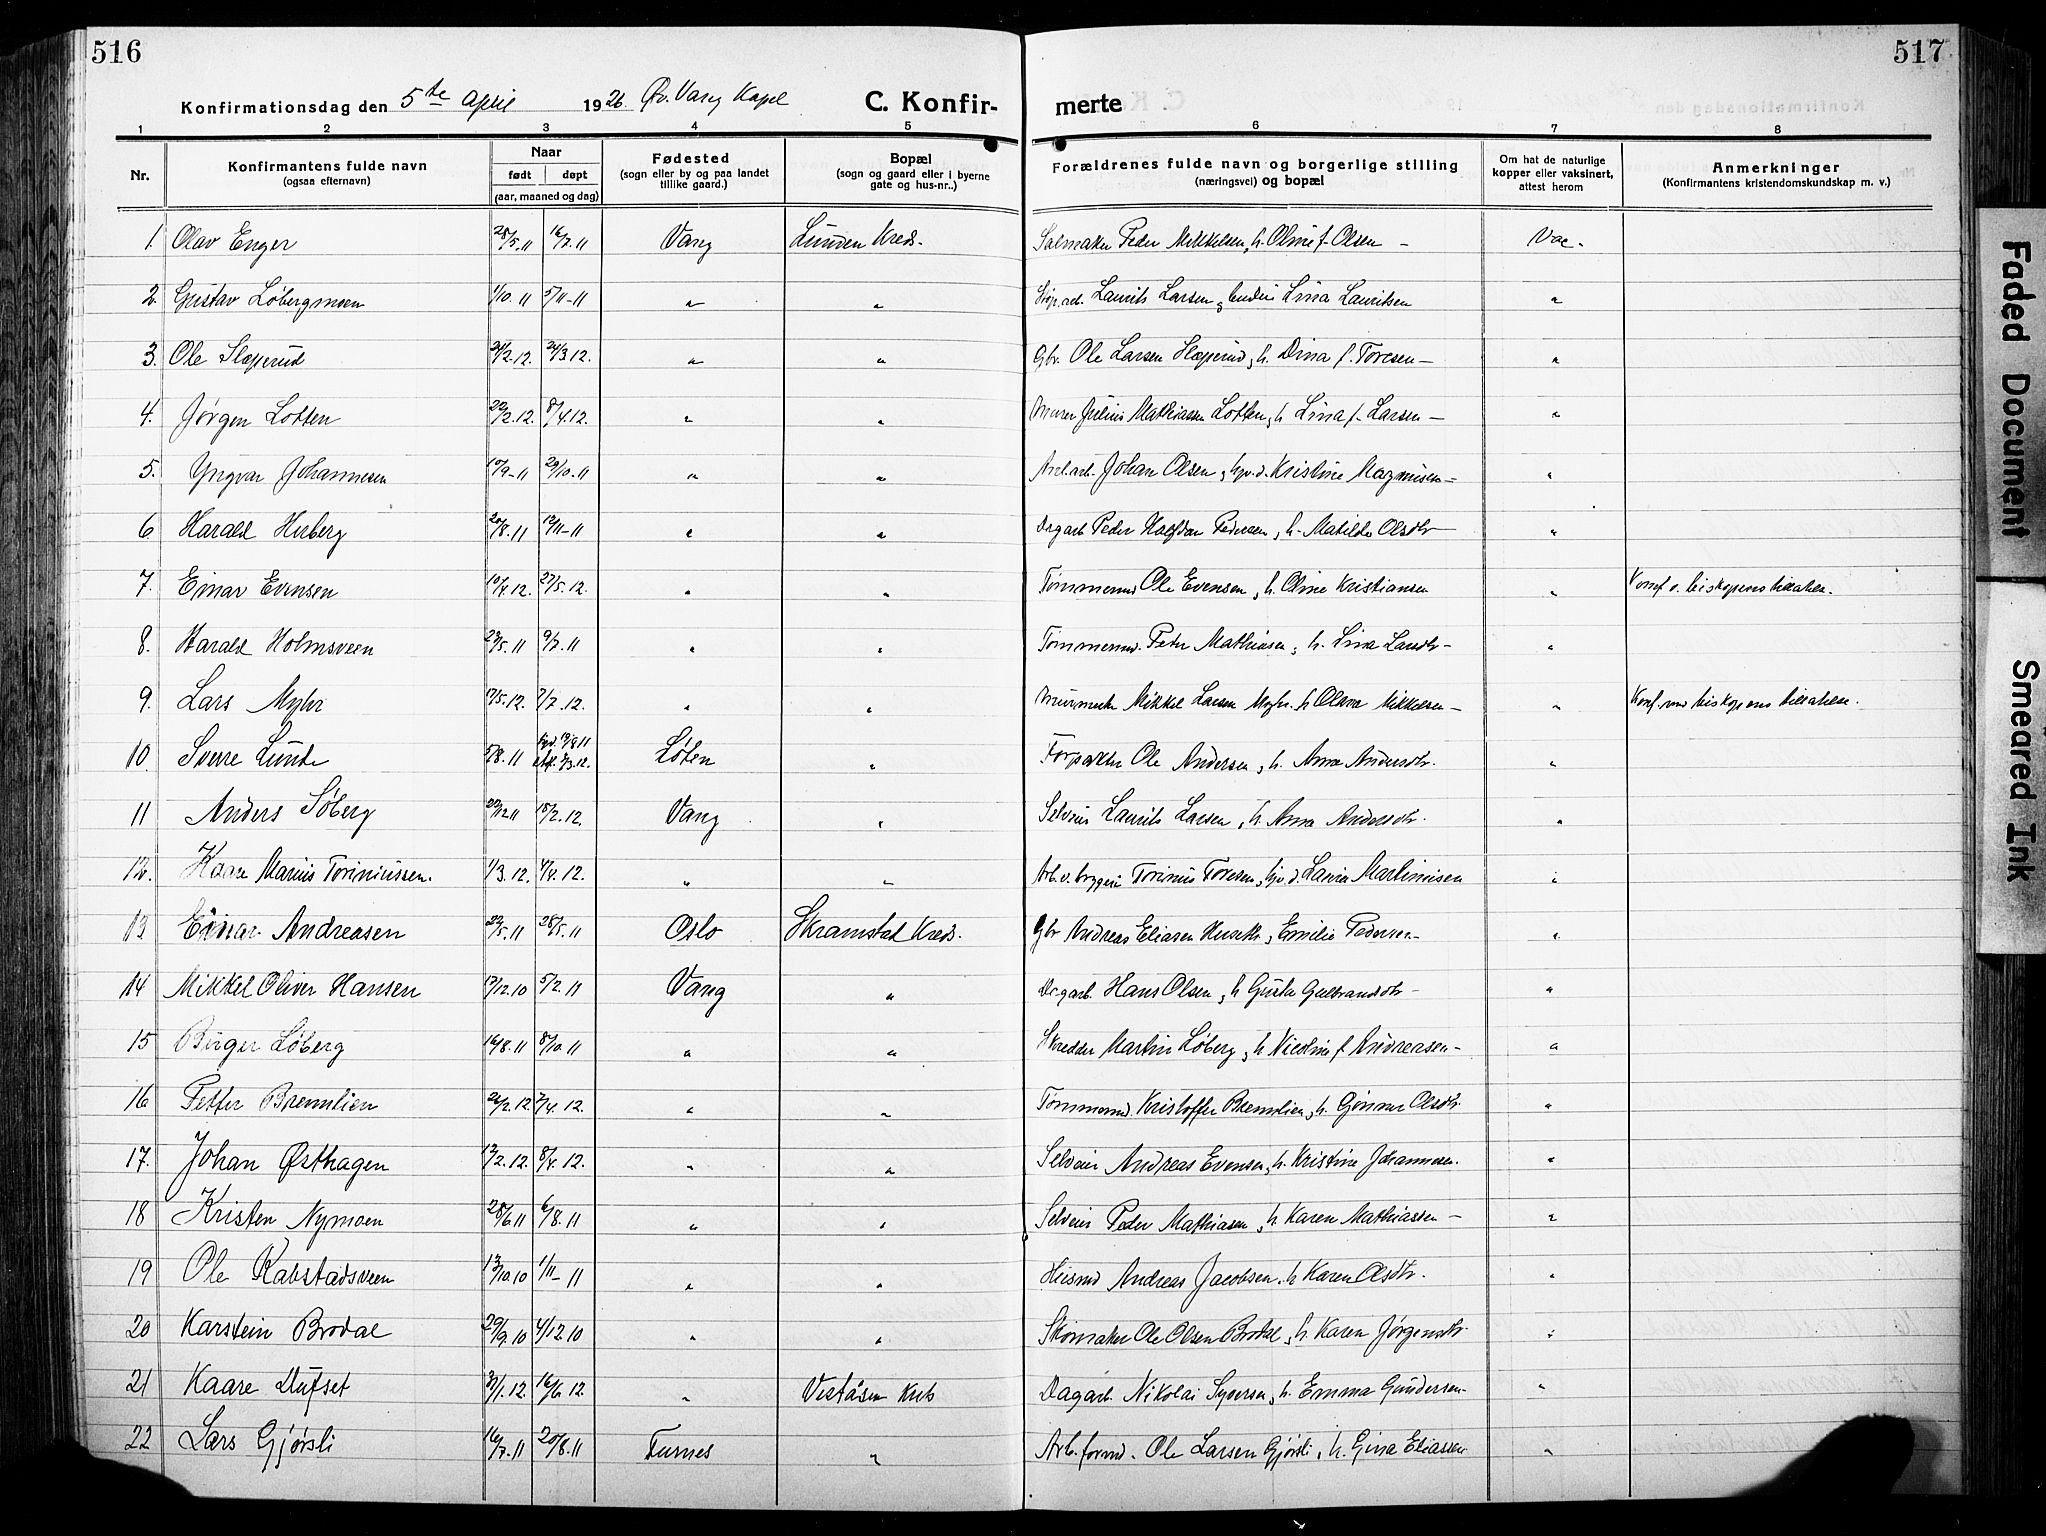 516
517
Konfirmationsdag den 5te April 1926 Øv. Vang Kapel C. Konfir- merte
1 2 3 4 5 6 7 8
Nr. Konfirmantens fulde navn (ogsaa efternavn) Naar født døpt (aar, maaned og dag) Fødested (sogn eller by og paa landet tillike gaard.) Bopæl (sogn og gaard eller i byerne gate og hus-nr..) Forældrenes fulde navn og borgerlige stilling (næringsvei) og bopæl Om hat de naturlige kopper eller vaksinert, attest herom Anmerkninger (Konfirmantens kristendomskundskap m. v.)
1. Olav Enger 28/5.11 16/7.11 Vang Lunden Kreds. Salmaker Peder Mikkelsen, h. Oline f. Olsen - Vac.
2 Gustav Løbergmoen 1/10.11 5/11-11 " " Laurits Larsen, Lina Lauritsen "
3. Ole Slæperud 21/2.12. 24/3.12. " " Gbr. Ole Larsen Slæperud, h. Dina f. Toresen- "
4. Jørgen Lotten 22/2.12. 8/4.12. " " Murer Julius Mathiassen Lotten, h Lina f. Larsen - "
5. Yngvar Johannesen 10/9-11 29/10.11 " " Johan Olsen, Kristine Magnusen - "
6 Harald Herberg 20/8.11 12/11-11 " " Dagarb Peder Halfdan Pedersen, h. Matilde Olsdtr "
7. Einar Evensen 10/4.12. 27/5.12. " " Tømmermd Ole Evensen, h. Oline Kristiansen " Konf. v. biskopens tillatelse.
8. Harald Holmsveen 23/5.11 9/7.11 " " Tømmermd. Peter Mathiasen, h. Lina Larsdtr - "
9. Lars Myhr 17/5.12. 7/7.12. " " Mikkel Larsen Myhr. h Olava Mikkelsen - " Konf. med biskopens tillatelse.
10. Sverre Lunde 5/8.11 19/8 11 3.12. Løten " Forpakter Ole Andersen, h. Anna Andersdtr. "
11 Anders Søberg 22/12 11 18/2.12. Vang " Selveier Laurits Larsen, h. Anna Andersdtr. "
12. Kaare Marius Toriniussen. 1/3.12. 4/4.12. " " Arb. v. bryggeri Torinius Toresen, Laura Martinusen "
13 Einar Andreasen 22/5.11 28/5.11 Oslo Skramstad Kreds. Gbr Andreas Eliasen, Emilie Pedersen- "
14 Mikkel Oliver Hansen 17/12.10 5/2.11 Vang " Dagarb. Hans Olsen, h Gusta Gulbrandsdtr - "
15 Birger Løberg 16/8.11 8/10.11 " " Skredder Martin Løberg, h Nicoline f Andreasen - "
16 Petter Brennlien 26/2.12 7/4.12. " " Tømmermd. Kristoffer Brennlien, h. Gunnor Olsdtr. "
17. Johan Østhagen 13/2.12. 8/4.12. " " Selveier Andreas Evensen, h. Kristine Johannesen. "
18 Kristen Nymoen 28/6 11 6/8.11 " " Selveier Peder Mathiasen, h. Karen Mathiassen - "
19 Ole Kabstadsveen 13/10.10 1/11-11 " " Husmd Andreas Jacobsen. h Karen Olsdtr. "
20 Karstein Brodal 29/9.10 4/12 10 " " Skomaker Ole Olsen Brodal, h. Karen Jørgensdtr. "
21 Kaare Dufset 31/1.12. 16/6 12 " Veståsen Kreds Dagarb. Nikolai Syversen, h. Emma Gundersen- "
22 Lars Gjørsli 16/7.11 20/8.11 Furnes " Arb. formd. Ole Larsen Gjørsli, h. Gina Eliassen "
Faded Document
Smeared Ink